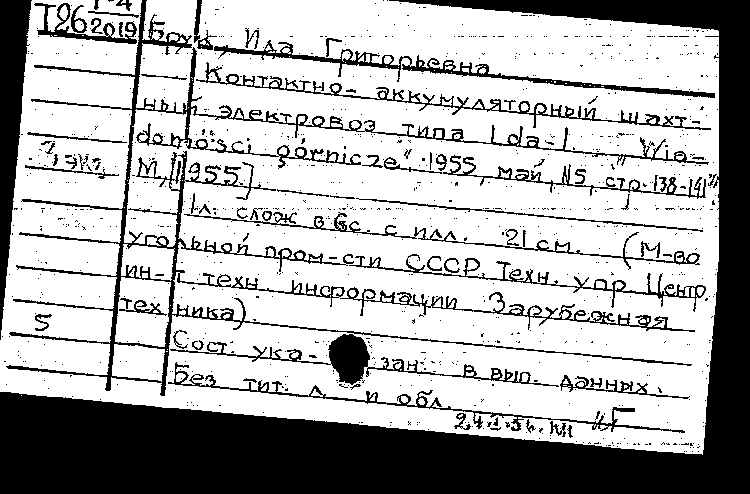 Т26 Г-4
2019
Брук, Ида Григорьевна.
Контактно-аккумуляторный шахт-
ный электровоз типа Lda-1. „Wia-
domości górnicze", 1955, май, N5, стр. 138-141"
М, [1955].
1л. слож в 6с. с илл. 21 см. (М-во
угольной пром-сти СССР. Техн. упр. Центр.
ин-т техн. информации Зарубежная
техника).
5
Сост. указан: в вып. данных.
Без тит. л. и обл.